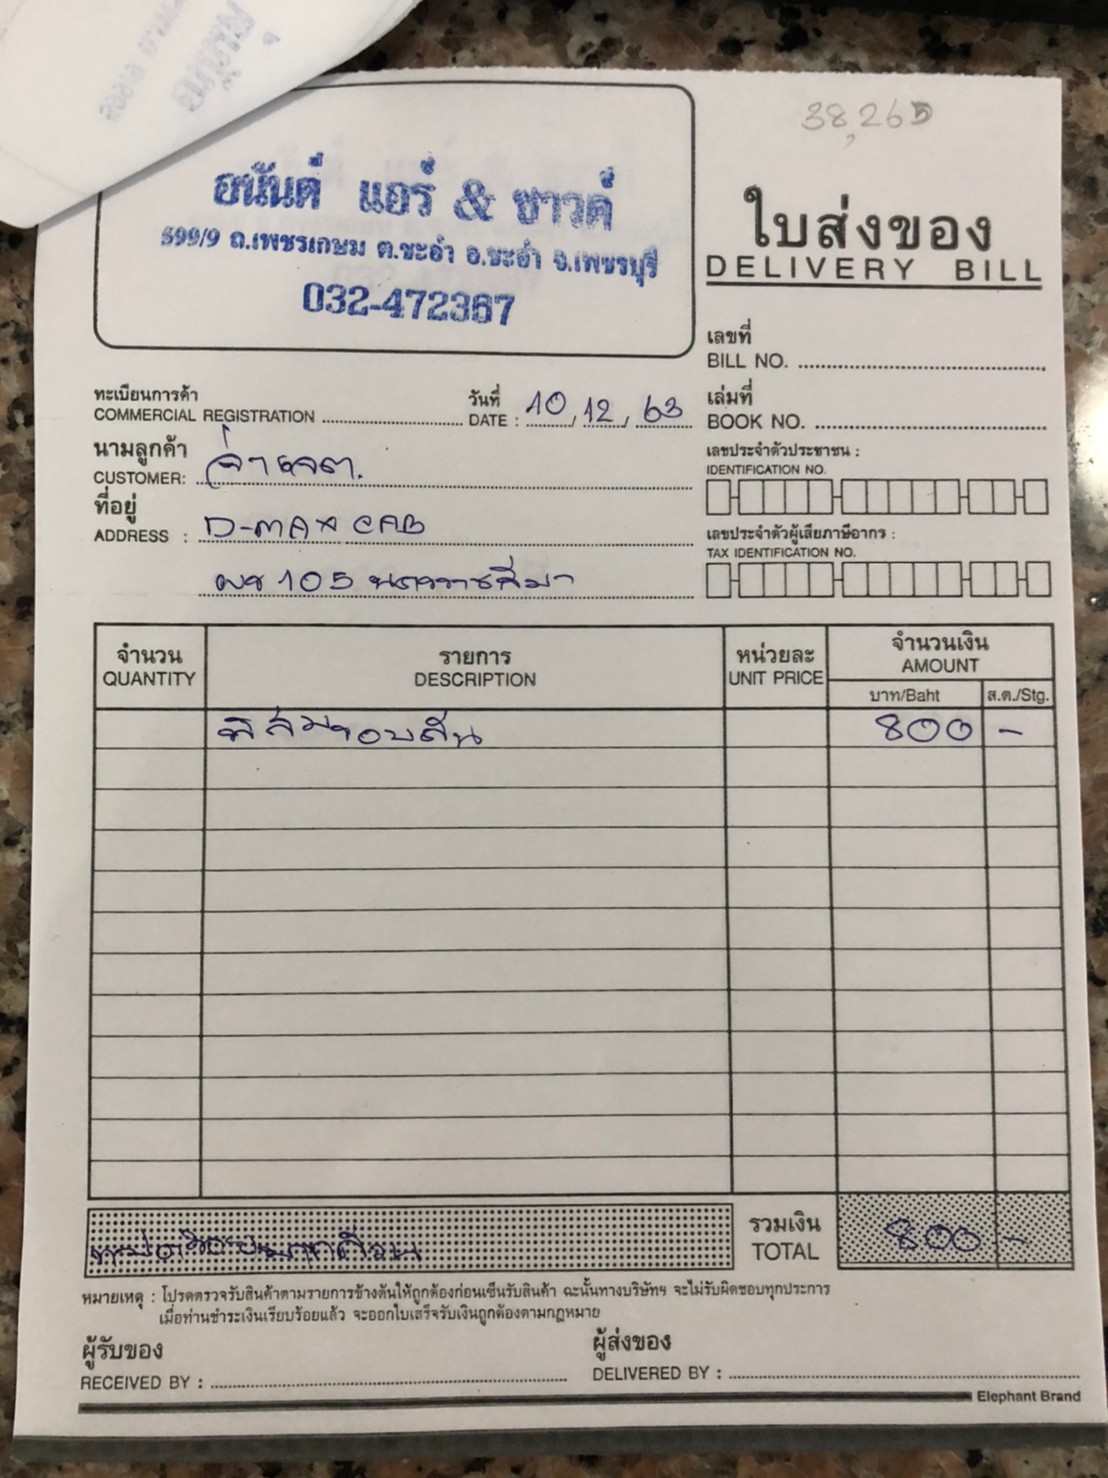 38,265
อนันต์ แอร์ & ซาวด์
599/9 ถ.เพชรเกษม ต.ชะอำ อ.ชะอำ จ.เพชรบุรี
032-472367
ใบส่งของ
DELIVERY BILL
เลขที่
BILL NO.
ทะเบียนการค้า
COMMERCIAL REGISTRATION
วันที่
DATE : 10, 12, 63
เล่มที่
BOOK NO.
นามลูกค้า
CUSTOMER: จ่า
เลขประจำตัวประชาชน :
IDENTIFICATION NO.
ที่อยู่
ADDRESS : D-MAX CAB
105 นครราชสีมา
เลขประจำตัวผู้เสียภาษีอากร :
TAX IDENTIFICATION NO.
จำนวน
QUANTITY
รายการ
DESCRIPTION
หน่วยละ
UNIT PRICE
จำนวนเงิน
AMOUNT
บาท/Baht
ส.ต./Stg.
ฟิล์มรอบคัน 800 -
รวมเงิน
TOTAL
800 -
หมายเหตุ : โปรดตรวจรับสินค้าตามรายการข้างต้นให้ถูกต้องก่อนเซ็นรับสินค้า ฉะนั้นทางบริษัทฯ จะไม่รับผิดชอบทุกประการ
เมื่อท่านชำระเงินเรียบร้อยแล้ว จะออกใบเสร็จรับเงินถูกต้องตามกฎหมาย
ผู้รับของ
RECEIVED BY :
ผู้ส่งของ
DELIVERED BY :
Elephant Brand